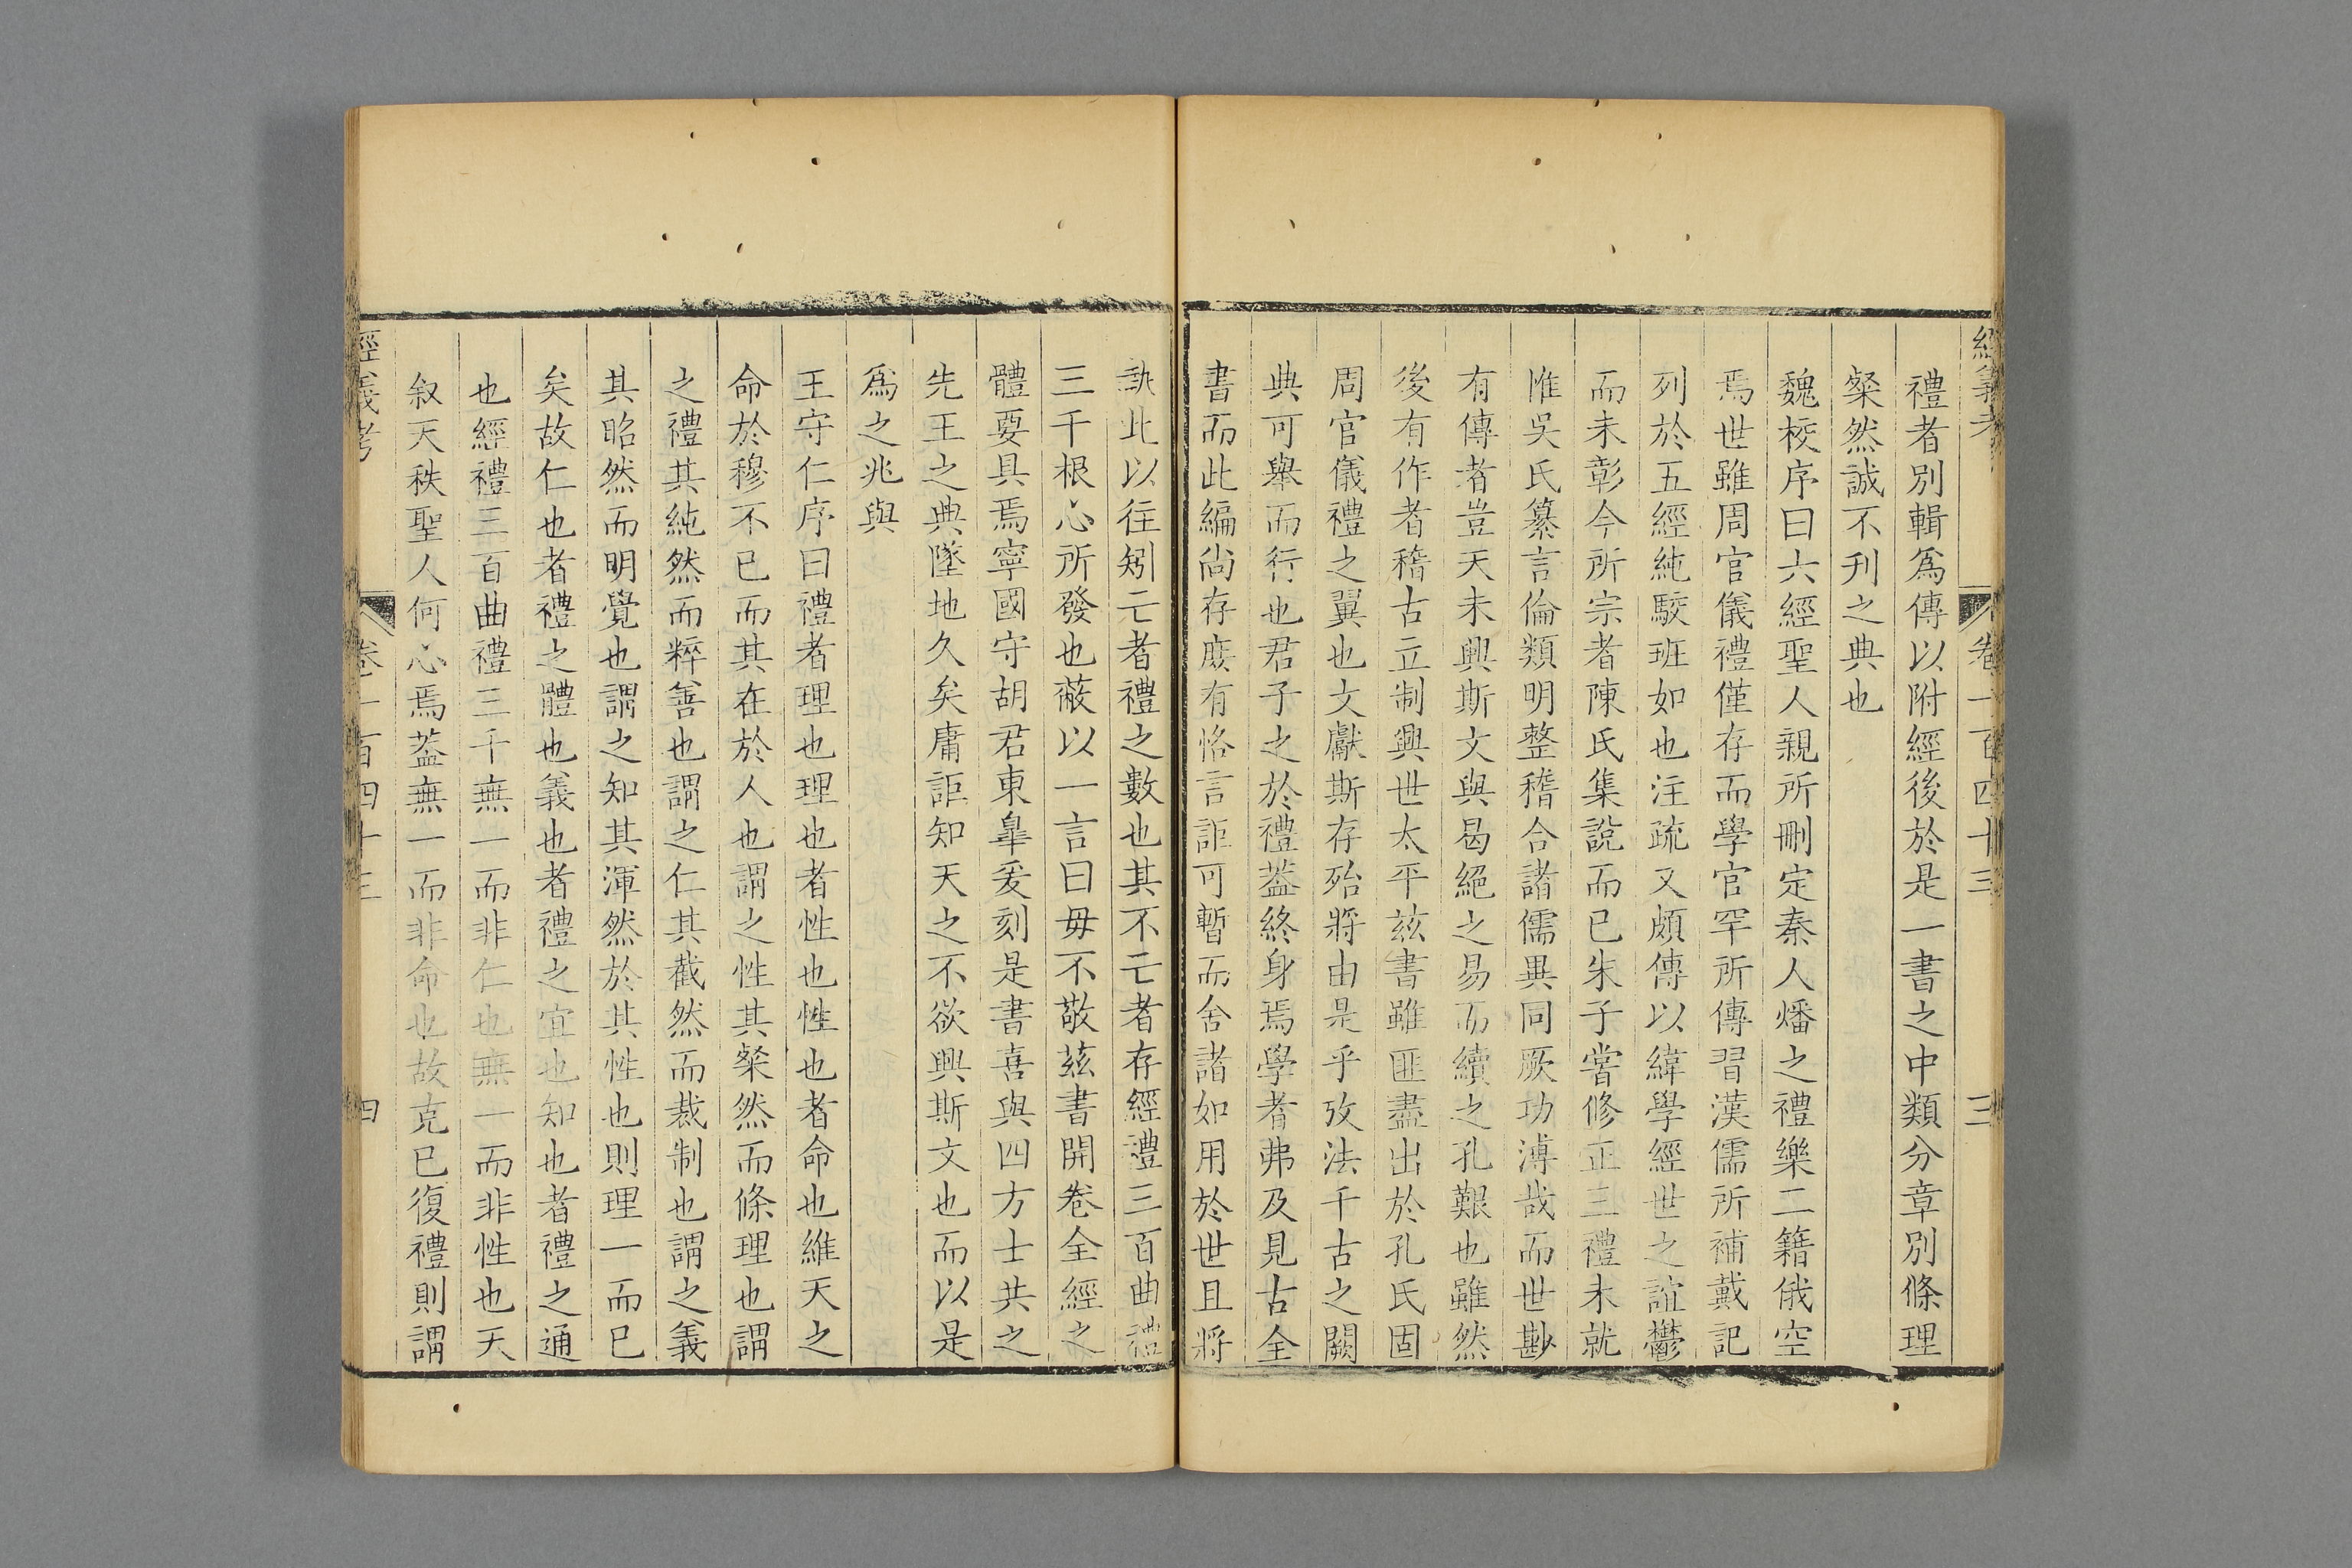 經義考 卷一百四十三 三
禮者別輯爲傳以附經後於是一書之中類分章別條理
粲然誠不刋之典也
魏校序曰六經聖人親所刪定秦人燔之禮樂二籍俄空
焉世雖周官儀禮僅存而學官罕所傳習漢儒所補戴記
列於五經純駁班如也注疏又頗傳以緯學經世之誼鬱
而未彰今所宗者陳氏集說而已朱子嘗修正三禮未就
惟吳氏纂言倫類明整稽合諸儒異同厥功溥哉而世尠
有傳者豈天未興斯文與曷絕之易而續之孔艱也雖然
後有作者稽古立制興世太平兹書雖匪盡出於孔氏固
周官儀禮之翼也文獻斯存殆將由是乎攷法千古之闕
典可舉而行也君子之於禮葢終身焉學者弗及見古全
書而此編尚存庻有恪言詎可暫而舍諸如用於世且將
執此以往矧亡者禮之數也其不亡者存經禮三百曲禮
三千根心所發也蔽以一言曰毋不敬兹書開卷全經之
體要具焉寧國守胡君東臯爰刻是書喜與四方士共之
先王之典墜地久矣庸詎知天之不欲興斯文也而以是
爲之兆與
王守仁序曰禮者理也理也者性也性也者命也維天之
命於穆不已而其在於人也謂之性其粲然而條理也謂
之禮其純然而粹善也謂之仁其截然而裁制也謂之義
其昭然而明覺也謂之知其渾然於其性也則理一而已
矣故仁也者禮之體也義也者禮之宜也知也者禮之通
也經禮三百曲禮三千無一而非仁也無一而非性也天
叙天秩聖人何心焉葢無一而非命也故克已復禮則謂
經義考 卷一百四十三 四